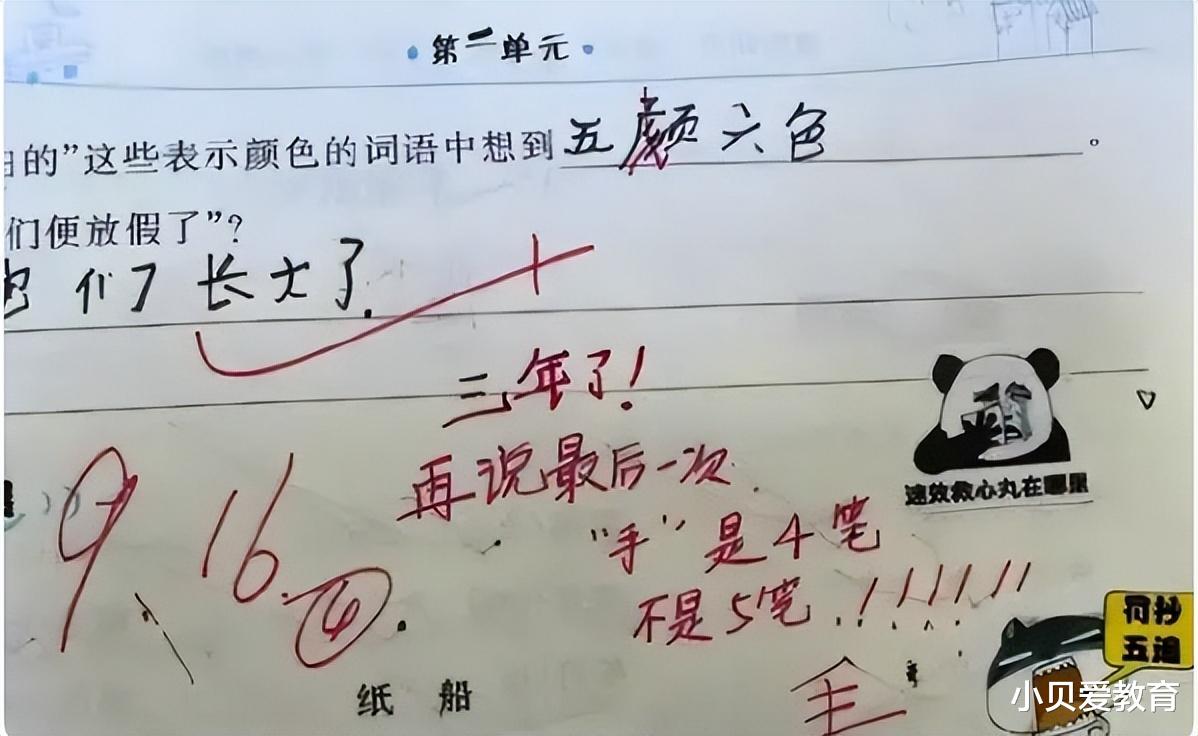 第二单元
的”这些表示颜色的词语中想到五颜六色。
们便放假了”?
们了长大了.
三年了!
再说最后一次.
速效救心丸在哪里
“手”是4笔
9、16.④.
不是5笔.!!!!!!
罚抄
五遍
纸船
小贝爱教育